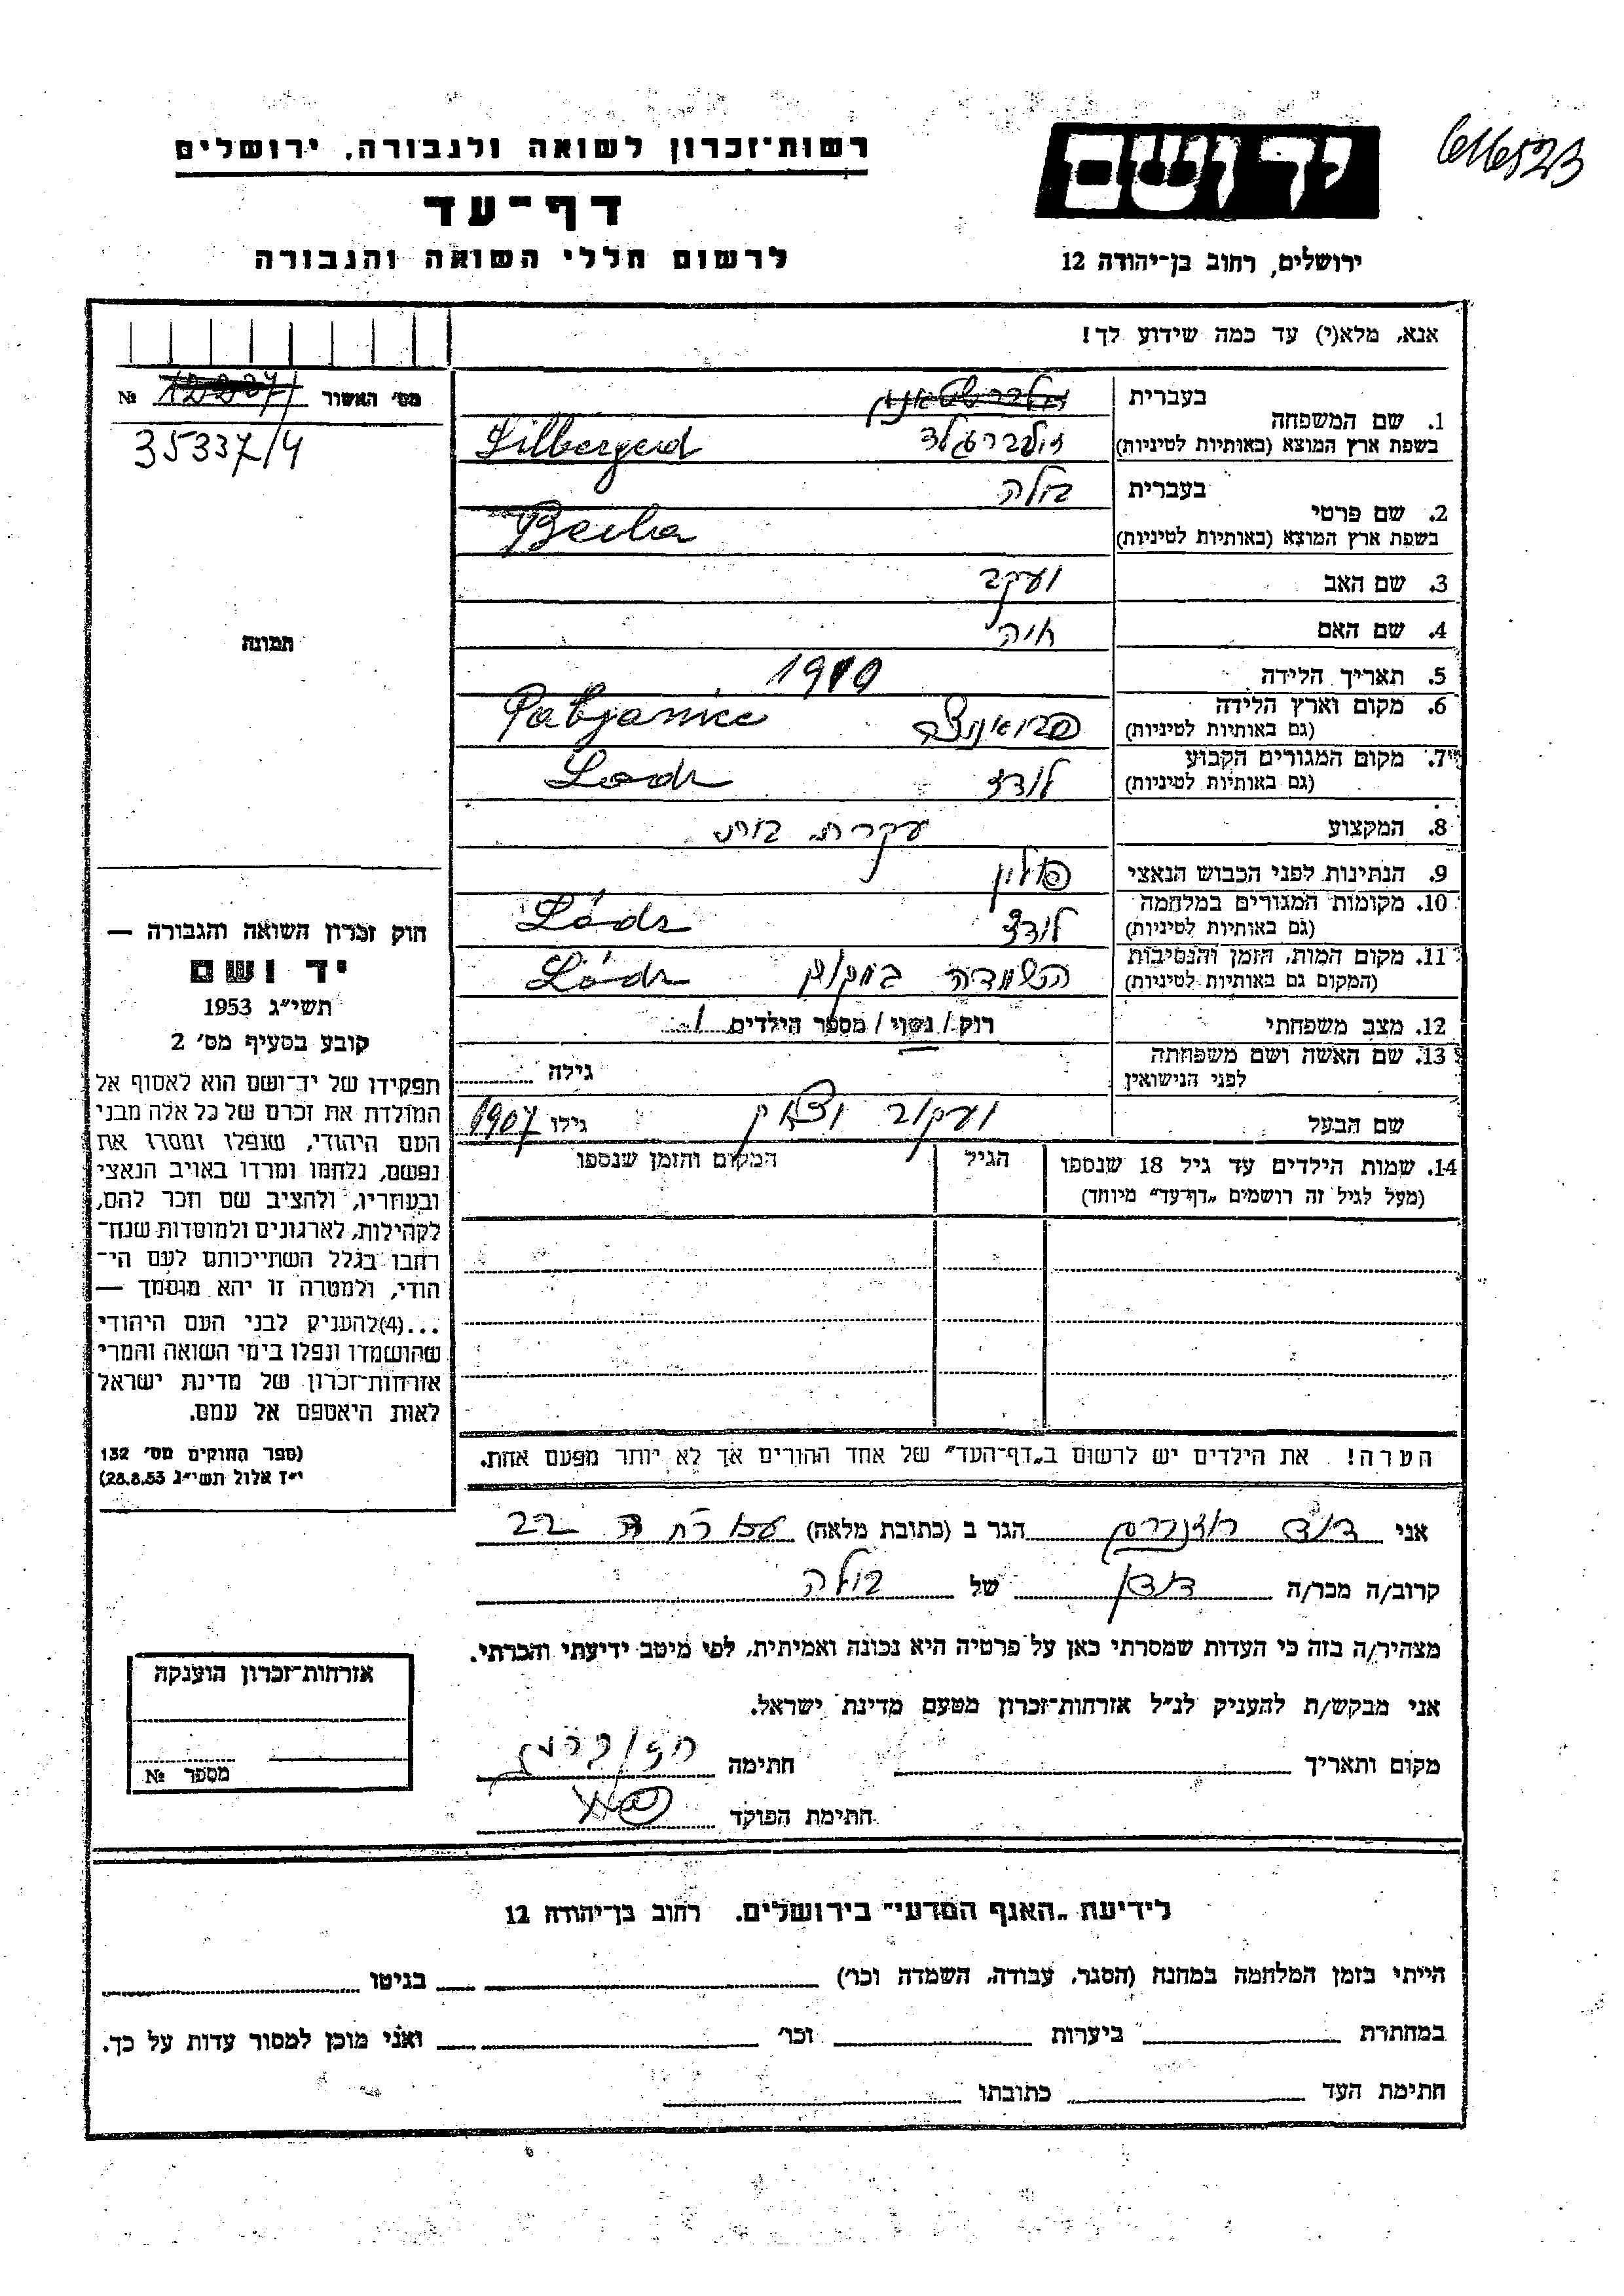 616523
רשות־זכרון לשואה ולגבורה, ירושלים
יד ושם
דף־עד
לרשום חללי השואה והגבורה
ירושלים, רחוב בן־יהודה 12
אנא, מלא(י) עד כמה שידוע לך!
מס׳ האשור №
35337/4
תמונה
1. שם המשפחה
בעברית
בשפת ארץ המוצא (באותיות לטיניות)
זילברגלד Zilbergeld
2. שם פרטי
בעברית ביילה
בשפת ארץ המוצא (באותיות לטיניות) Beila
3. שם האב יעקב
4. שם האם חיה
5. תאריך הלידה 1910
6. מקום וארץ הלידה
(גם באותיות לטיניות) פביאניצה Pabjanice
7. מקום המגורים הקבוע
(גם באותיות לטיניות) לודז Lodz
8. המקצוע עקרת בית
9. הנתינות לפני הכבוש הנאצי פולין
10. מקומות המגורים במלחמה
(גם באותיות לטיניות) לודז Lódz
11. מקום המות, הזמן והנסיבות
(המקום גם באותיות לטיניות) השמדה Lódz
12. מצב משפחתי רוק / נשוי / מספר הילדים 1
13. שם האשה ושם משפחתה
לפני הנישואין גילה
שם הבעל יעקוב יצחק גילו 1907
14. שמות הילדים עד גיל 18 שנספו
(מעל לגיל זה רושמים „דף־עד” מיוחד)
הגיל
המקום והזמן שנספו
חוק זכרון השואה והגבורה —
יד ושם
תשי״ג 1953
קובע בסעיף מס׳ 2
תפקידו של יד־ושם הוא לאסוף אל
המולדת את זכרם של כל אלה מבני
העם היהודי, שנפלו ומסרו את
נפשם, נלחמו ומרדו באויב הנאצי
ובעוזריו, ולהציב שם וזכר להם,
לקהילות, לארגונים ולמוסדות שנח־
רחבו בגלל השתייכותם לעם הי־
הודי, ולמטרה זו יהא מוסמך —
...(4) להעניק לבני העם היהודי
שהושמדו ונפלו בימי השואה והמרי
אזרחות־זכרון של מדינת ישראל
לאות היאספם אל עמם.
(ספר החוקים מס׳ 132
י״ז אלול תשי״ג 28.8.53)
הערה! את הילדים יש לרשום ב„דף־העד” של אחד ההורים אך לא יותר מפעם אחת.
אני דוד הגר ב (כתובת מלאה) 22
קרוב/ה מכר/ה דודן של ביילה
מצהיר/ה בזה כי העדות שמסרתי כאן על פרטיה היא נכונה ואמיתית, לפי מיטב ידיעתי והכרתי.
אני מבקש/ת להעניק לנ״ל אזרחות־זכרון מטעם מדינת ישראל.
מקום ותאריך חתימה
חתימת הפוקד
אזרחות־זכרון הוענקה
מספר №
לידיעת „האגף המדעי” בירושלים, רחוב בן־יהודה 12
הייתי בזמן המלחמה במחנה (הסגר, עבודה, השמדה וכו׳) בגיטו
במחתרת ביערות וכו׳ ואני מוכן למסור עדות על כך.
חתימת העד כתובתו